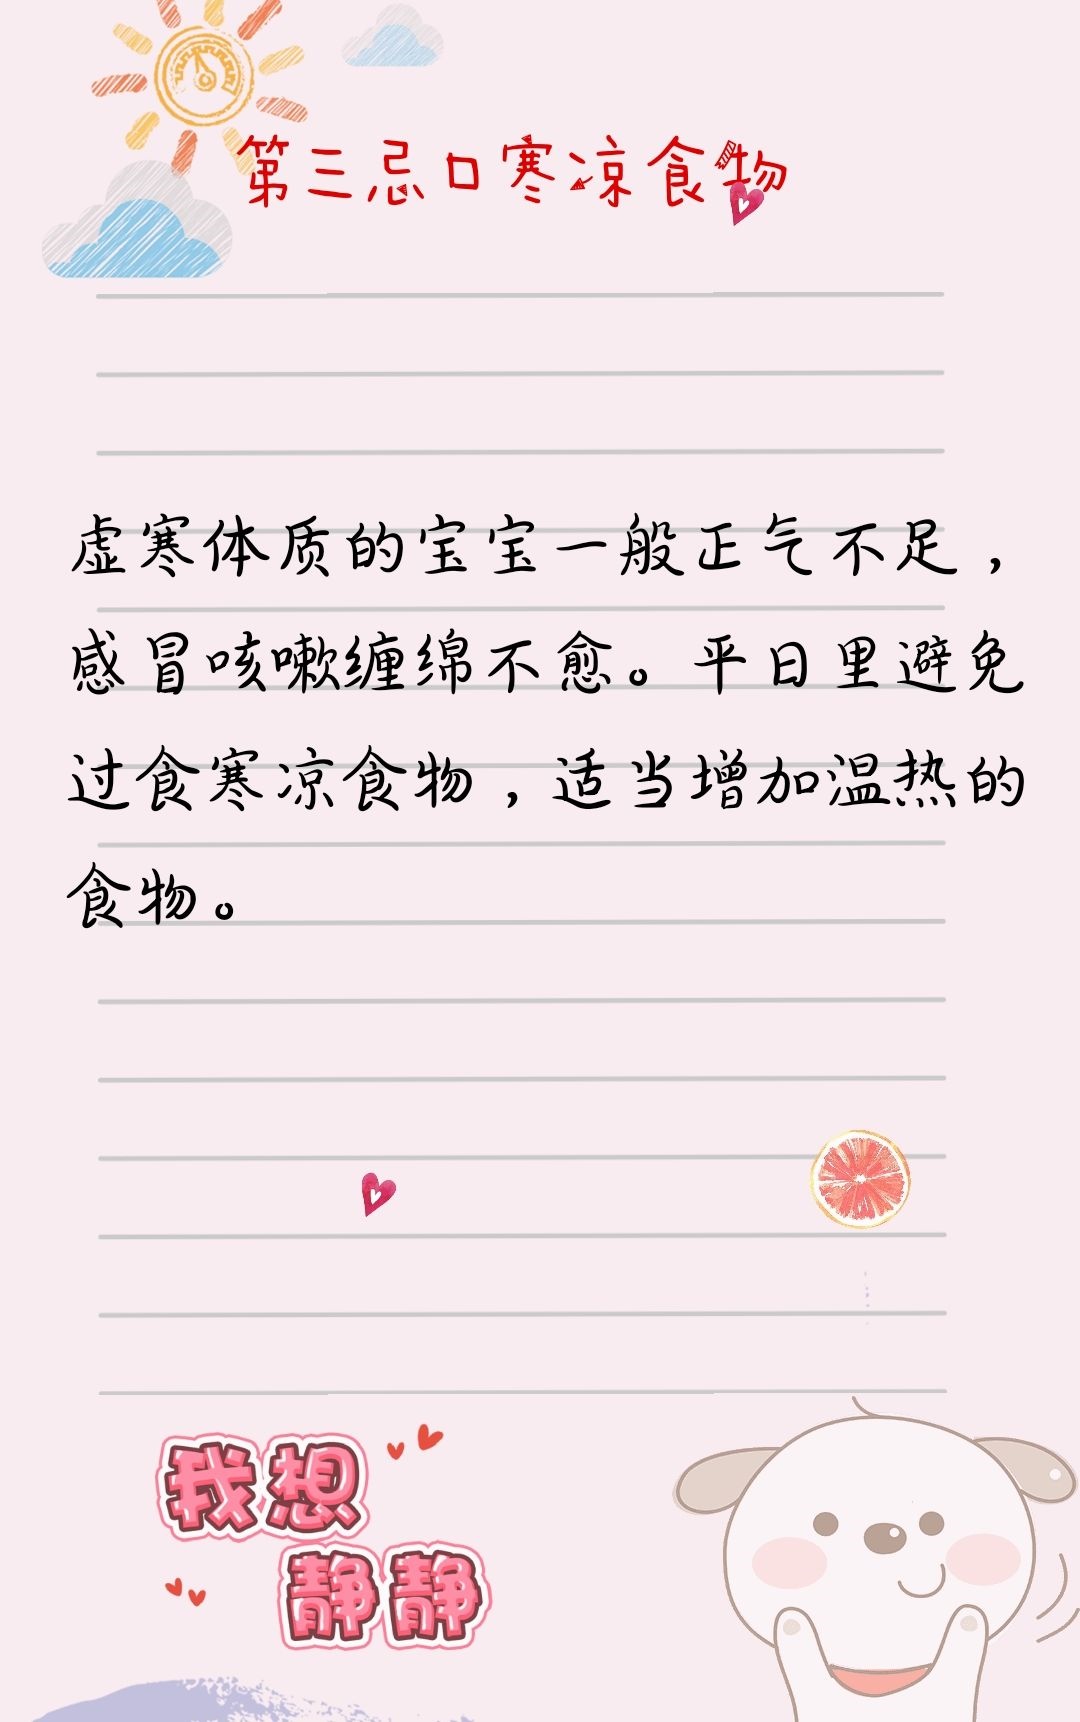 第三忌口寒凉食物
虚寒体质的宝宝一般正气不足，
感冒咳嗽缠绵不愈。平日里避免
过食寒凉食物，适当增加温热的
食物。
我想
静静